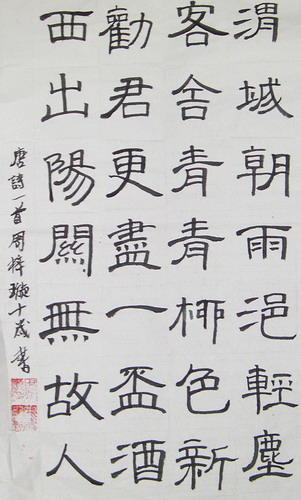 渭城朝雨浥輕塵
客舍青青桺色新
勸君更盡一盃酒
西出陽關無故人
唐詩一首周梓璇十歲書